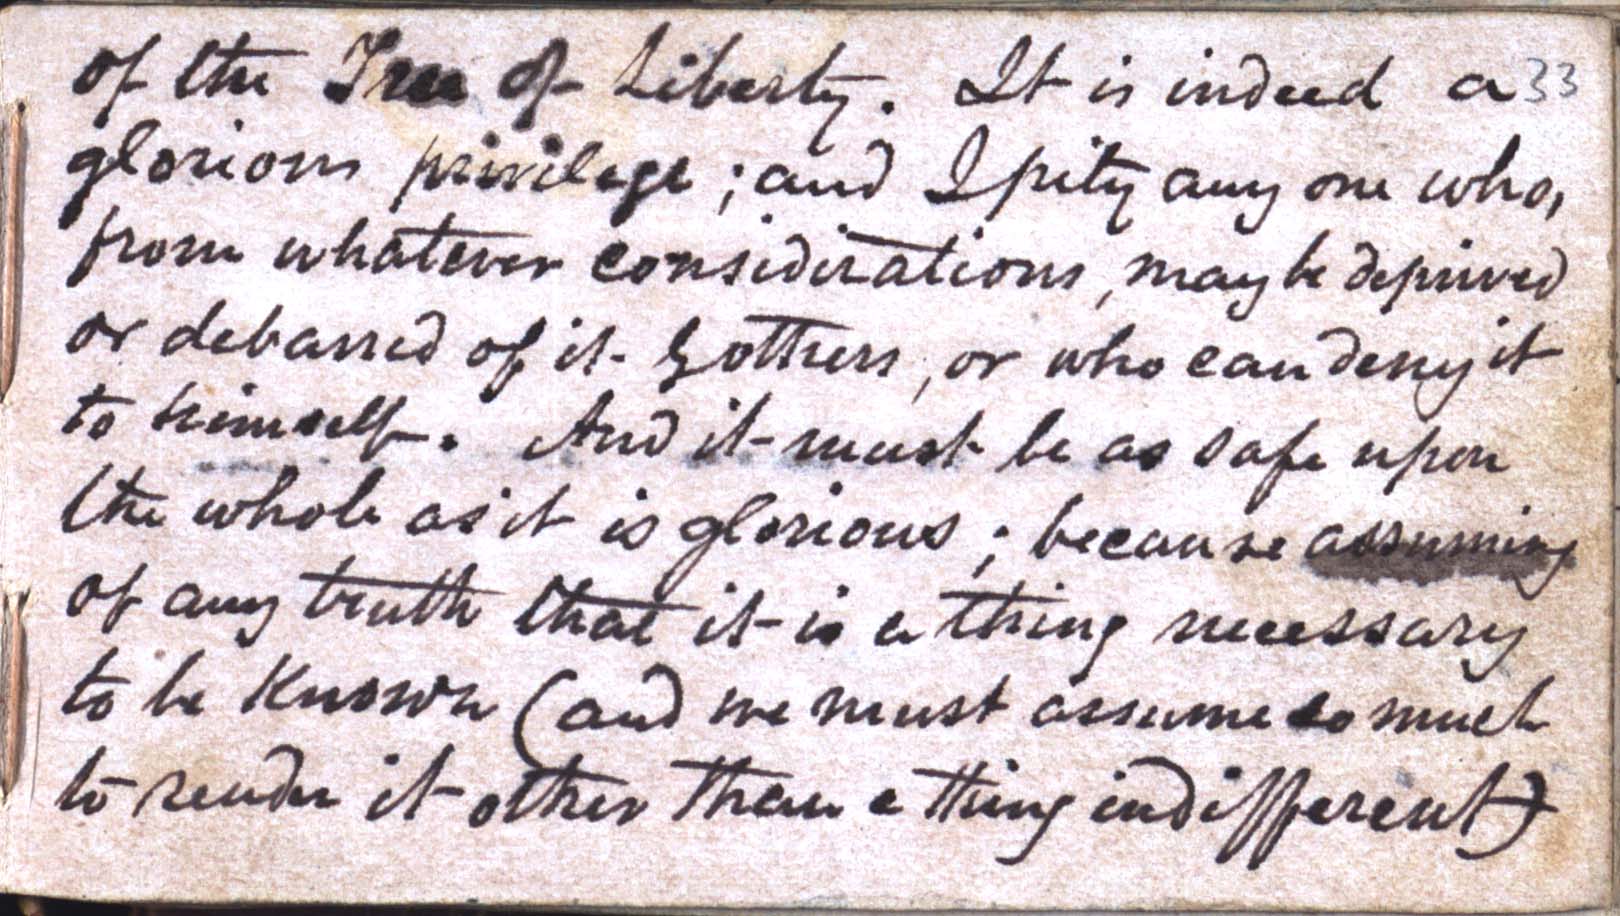 of the Tree of Liberty. It is indeed a 33
glorious privilege; and I pity any one who,
from whatever considerations, may be deprived
or debarred of it by others, or who can deny it
to himself. And it must be as safe upon
the whole as it is glorious; because assuming
of any truth that it is a thing necessary
to be known (and we must assume so much
to render it other than a thing indifferent)